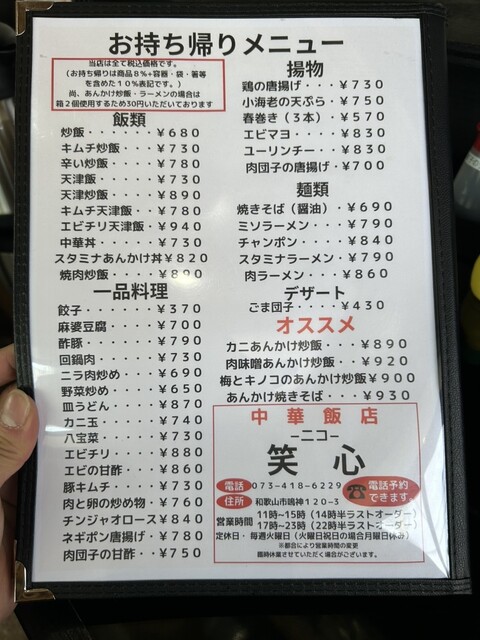 お持ち帰りメニュー
当店は全て税込価格です。
(お持ち帰りは商品8%+容器・袋・箸等
を含めた10%表記です。)
尚、あんかけ炒飯・ラーメンの場合は
箱2個使用するため30円いただいております
飯類
炒飯・・・・・・¥680
キムチ炒飯・・・¥730
辛い炒飯・・・・¥780
天津飯・・・・・¥730
天津炒飯・・・・¥890
キムチ天津飯・・¥780
エビチリ天津飯・¥940
中華丼・・・・・¥730
スタミナあんかけ丼¥820
焼肉炒飯・・・・¥890
一品料理
餃子・・・・・・¥370
麻婆豆腐・・・・¥700
酢豚・・・・・・¥790
回鍋肉・・・・・¥730
ニラ肉炒め・・・¥690
野菜炒め・・・・¥650
皿うどん・・・・¥870
カニ玉・・・・・¥740
八宝菜・・・・・¥730
エビチリ・・・・¥880
エビの甘酢・・・¥860
豚キムチ・・・・¥730
肉と卵の炒め物・¥760
チンジャオロース¥840
ネギポン唐揚げ・¥780
肉団子の甘酢・・¥750
揚物
鶏の唐揚げ・・・¥730
小海老の天ぷら・¥750
春巻き(3本)・¥570
エビマヨ・・・・¥830
ユーリンチー・・¥830
肉団子の唐揚げ・¥700
麺類
焼きそば(醤油)・¥690
ミソラーメン・・・¥790
チャンポン・・・・¥840
スタミナラーメン・¥790
肉ラーメン・・・¥860
デザート
ごま団子・・・・¥430
オススメ
カニあんかけ炒飯・・¥890
肉味噌あんかけ炒飯・・¥920
梅とキノコのあんかけ炒飯¥900
あんかけ焼きそば・・・¥930
中華飯店
ーニコー
笑心
電話 073-418-6229
電話予約
できます。
住所 和歌山市鳴神120-3
営業時間 11時~15時(14時半ラストオーダー)
17時~23時(22時半ラストオーダー)
定休日・毎週火曜日(火曜日祝日の場合月曜日休み)
※都合により営業時間の変更
臨時休業させていただく場合がございます。